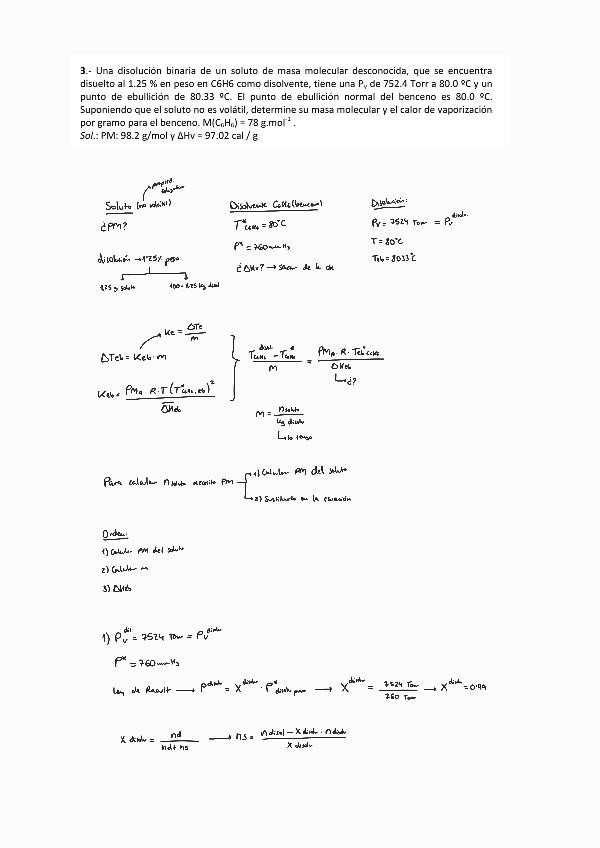 3.- Una disolución binaria de un soluto de masa molecular desconocida, que se encuentra
disuelto al 1.25 % en peso en C6H6 como disolvente, tiene una Pv de 752.4 Torr a 80.0 ºC y un
punto de ebullición de 80.33 ºC. El punto de ebullición normal del benceno es 80.0 ºC.
Suponiendo que el soluto no es volátil, determine su masa molecular y el calor de vaporización
por gramo para el benceno. M(C₆H₆) = 78 g.mol⁻¹ .
Sol.: PM: 98.2 g/mol y ΔHv = 97.02 cal / g
Soluto (no volátil)
¿PM?
disolución → 1'25% peso
1,25 g soluto
Disolvente C6H6 (benceno)
T* C6H6 = 80°C
P* = 760 mmHg
¿ΔHv? → sacar de la de
Disolución:
Pv = 752'4 Torr = Pv disolv.
T = 80°C
Teb = 80'33°C
Ke = ΔTe / m
ΔTeb = Keb · m
Keb = PMA · R · T (T* C6H6, eb)² / ΔHeb
T disol C6H6 - T* C6H6 / m = PMA · R · Teb* C6H6 / ΔHeb
↳ ¿?
m = n soluto / kg disolv
↳ lo tengo
Para calcular n soluto necesito PM
1) Calcular PM del soluto
2) Sustituirlo en la ecuación
Orden:
1) Calcular PM del soluto
2) Calcular m
3) ΔHeb
1) Pv dil = 752'4 Torr = Pv disolv
P* = 760 mmHg
Ley de Raoult → P disolv = X disolv · P* disolv puro → X disolv = 752'4 Torr / 760 Torr → X disolv = 0'99
X disolv = nd / nd + ns → ns = n disol - X disolv · n disolv / X disolv